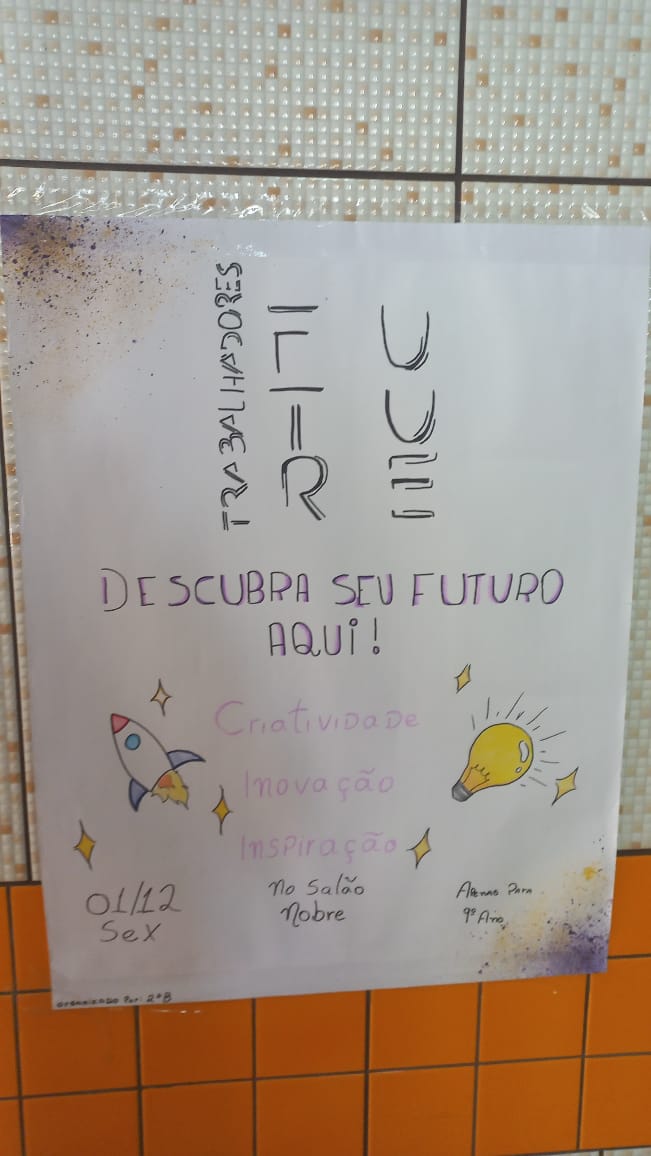 TRABALHADORES
DESCUBRA SEU FUTURO
AQUi!
CriatiViDaDe
Inovação
Inspiração
01/12
Sex
No Salão
Nobre
Apenas Para
9º Ano
ORGANIZADO Por: 2ºB